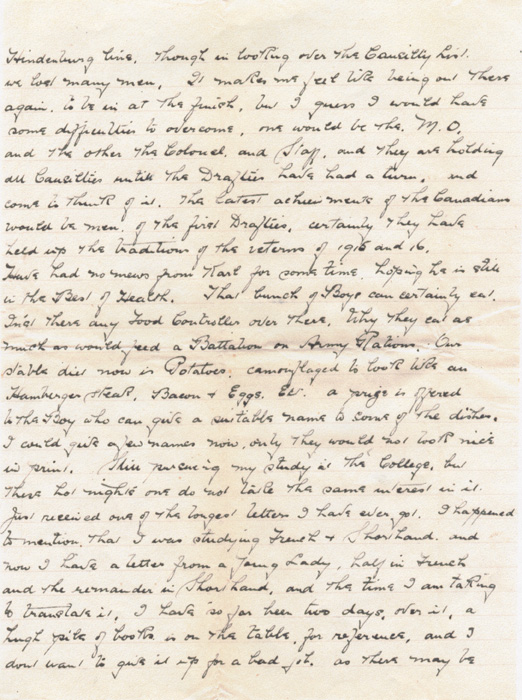 Hindenburg line, though in looking over the Causility list
we lost many men, It makes me feel like being out there
again, to be in at the finish, but I guess I would have
some difficulties to overcome, one would be the, M.O,
and the other the Colonel, and Staff, and they are holding
all Causilties untill the Drafties have had a turn, and
come to think of it, the latest achievements of the Canadians
would be men, of the first Drafties, certainly they have
held up the traditions of the veterns of 1915 and 16.
Have had no news from Karl for some time, hoping he is still
in the Best of Health. That bunch of Boys can certainly eat.
Isnt there any Food Controller over there, Why they eat as
much as would feed a Battalion on Army Rations. Our
stable diet now is Potatoes, camouflaged to look like an
Hamberger steak, Bacon & Eggs, Etc. a prize is offered
to the Boy who can give a suitable name to some of the dishes.
I could give a few names now, only they would not look nice
in print. Still pursuing my study at the College, but
these hot nights one do not take the same interest in it.
Just received one of the longest letters I have ever got. I happened
to mention, that I was studying French & Shorthand, and
now I have a letter from a Joung Lady, half in French
and the remander in Shorthand, and the time I am taking
to translate it, I have so far been two days, over it, a
hugh pile of books is on the table, for reference, and I
dont want to give it up for a bad jot, as there may be